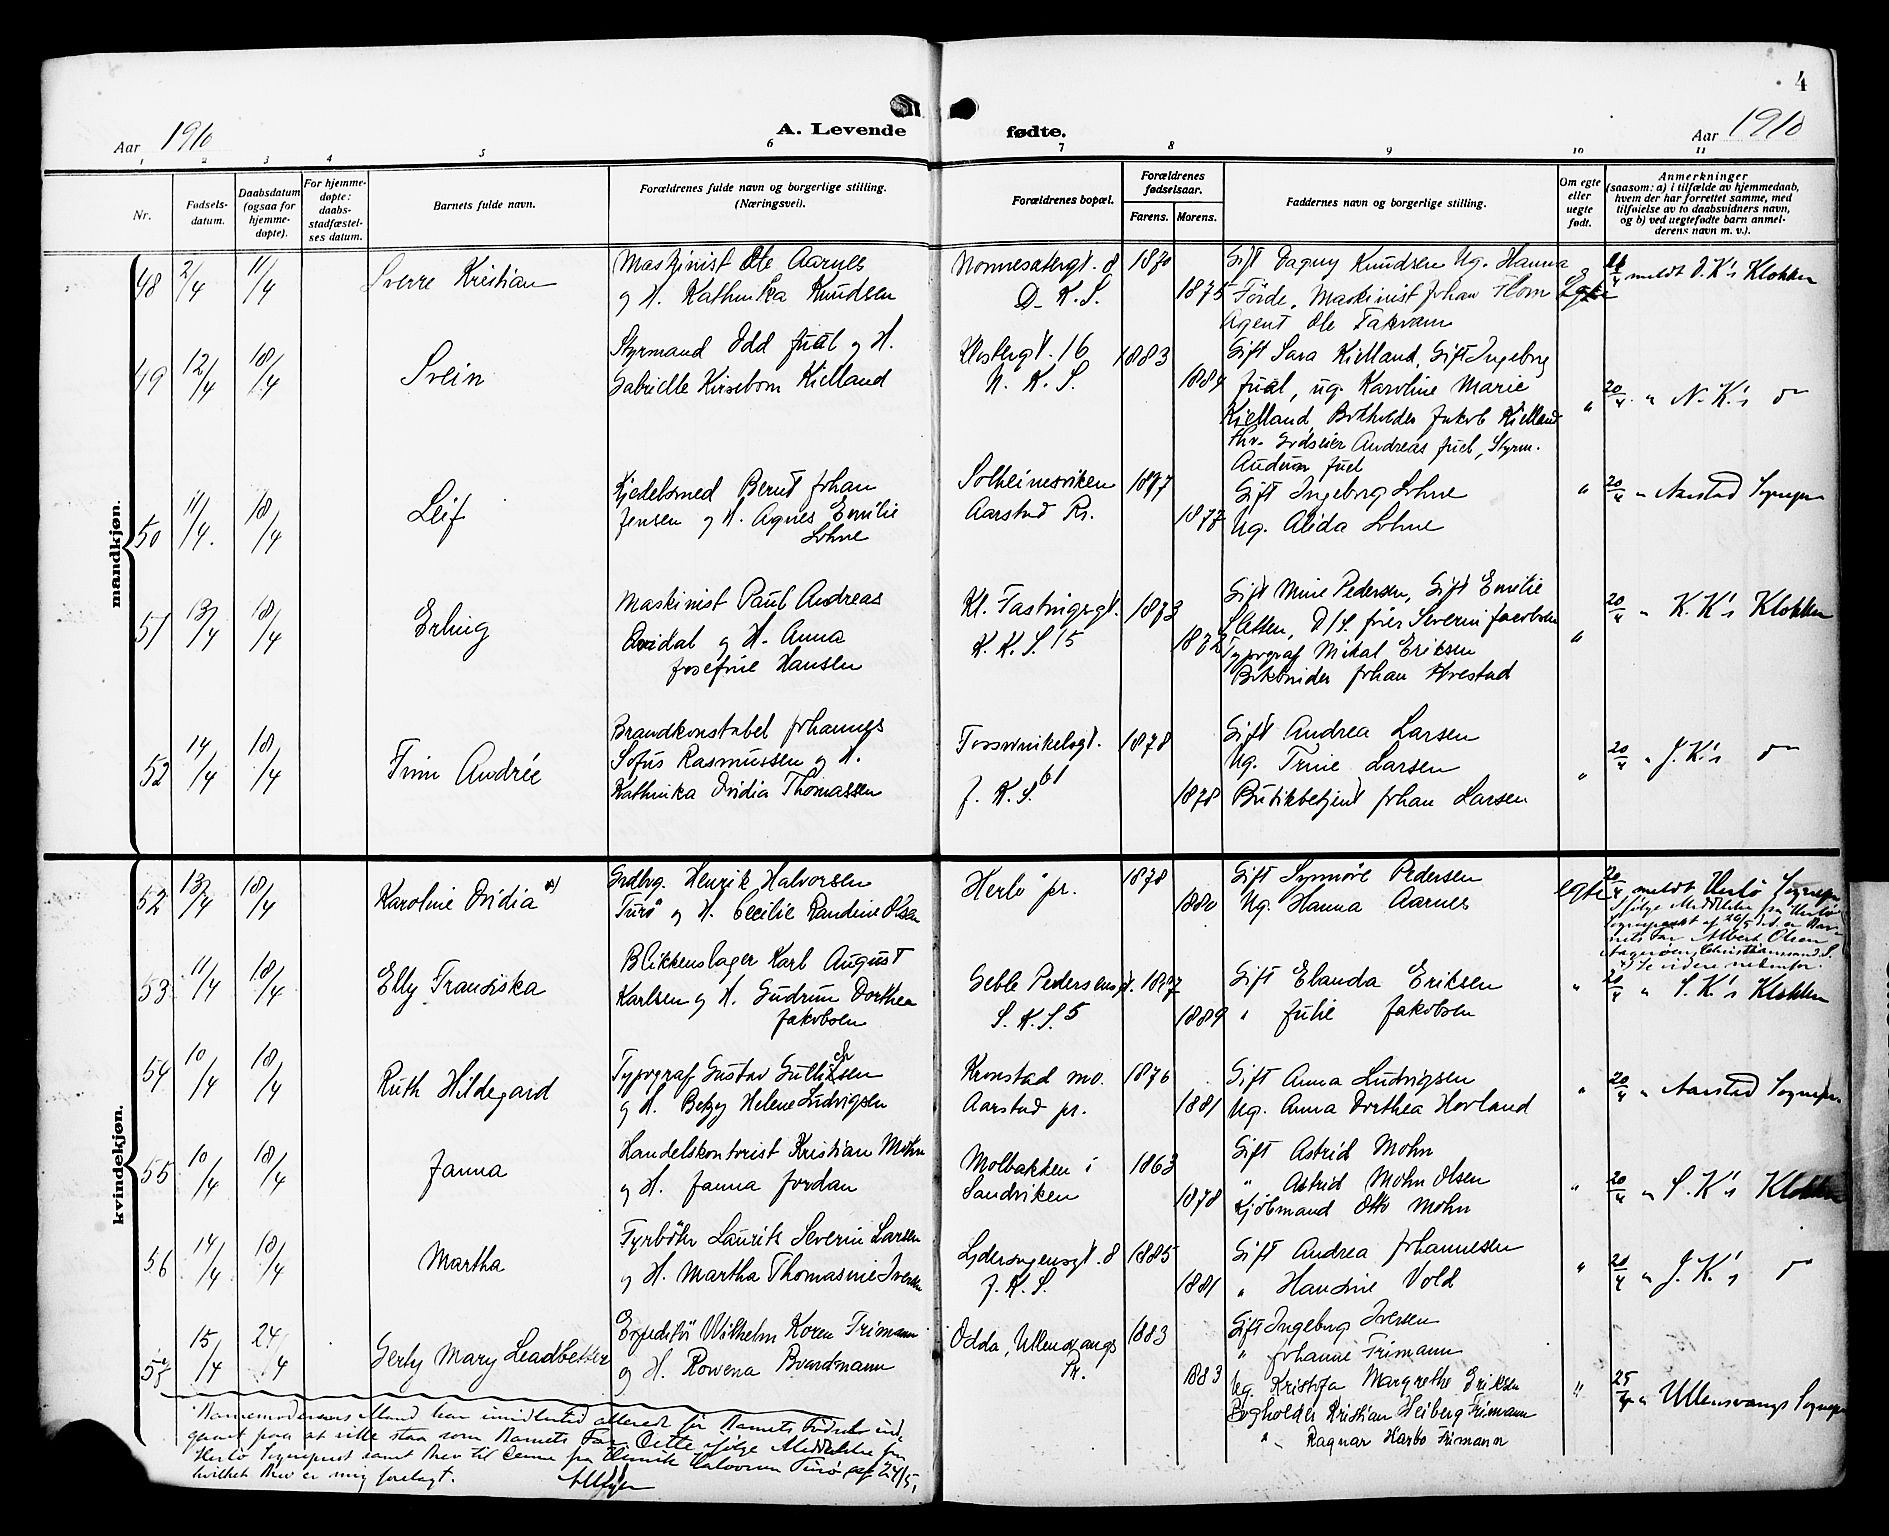 4
Aar 1910
A. Levende
fødte.
Aar 1910
1 2 3 4 5 6 7 8 9 10 11
Nr.
Fødsels-
datum.
Daabsdatum
(ogsaa for
hjemme-
døpte).
For hjemme-
døpte:
daabs-
stadfæstel-
ses datum.
Barnets fulde navn.
Forældrenes fulde navn og borgerlige stilling.
(Næringsvei).
Forældrenes bopæl.
Forældrenes
fødselsaar.
Farens. Morens.
Faddernes navn og borgerlige stilling.
Om egte
eller
uegte
født.
Anmerkninger
(saasom: a) i tilfælde av hjemmedaab,
hvem der har forrettet samme, med
tilføielse av to daabsvidners navn,
og b) ved uegtefødte barn anmel-
derens navn m. v.).
mandkjøn.
48 2/4 11/4 Sverre Kristian
Maskinist Ole Aarnes
og H. Kathinka Knudsen
Nonnesætergt. 8
D. K. S.
1870
1875
Gift Dagny Knudsen Ug. Hanna
Förde, Maskinist Johan Hom
Agent Ole Takvam
Egte
meldt D.K's Klokker
49 12/4 18/4 Svein
Styrmand Odd Juul og H.
Gabrielle Kirsebom Kielland
Klostergt. 16
N. K. S.
1883
1884
Gift Sara Kielland, Gift Ingeborg
Juul, ug. Karoline Marie
Kielland, Jakob Kielland
Andreas Juel, Styrm.
Audun Juel
" 20/4 " N. K's
50 11/4 18/4 Leif
Kjedelsmed Bernt Johan
Jensen og H. Agnes Emilie
Lohne
Solheimsviken
Aarstad Pr.
1877
1877
Gift Ingeborg Lohne
Ug. Alida Lohne
" 20/4 " Aarstad Sognepr
51 13/4 18/4 Erling
Maskinist Paul Andreas
og H. Anna
Josefine Hansen
Kl.
K. K. S. 15
1873
1872
Gift Mine Pedersen, Gift Emilie
Sletten, D/S. fører Severin Jacobsen
Typograf Mikal Eriksen
Johan
" 20/4 " K. K's Klokker
52 14/4 18/4 Finn Andrée
Brandkonstabel Johannes
Sofus Rasmussen og H.
Kathinka Ovidia Thomassen
J. K. S. 61
1878
1878
Gift Andrea Larsen
Ug. Trine Larsen
Butikbetjent Johan Larsen
" 20/4 " J. K's
kvindekjøn.
52 13/4 18/4 Karoline Ovidia *)
Grdbrg. Henrik Halvorsen
Turö og H. Cecilie Randine Olsen
Herlö pr.
1878
1880
Gift Synnöve Pedersen
Ug. Hanna Aarnes
egte
20/4 meldt Herlö Sognepr
Albert Olsen
Christianssand S.
*) Se videre nedenfor.
53 11/4 18/4 Elly Franziska
Blikkenslager Karl August
Karlsen og H. Gudrun Dorthea
Jakobsen
Geble Pedersensgt.
S. K. S. 5
1887
1889
Gift Elanda Eriksen
" Julie Jakobsen
" 20/4 " S. K's Klokker
54 10/4 18/4 Ruth Hildegard
Typograf Gustav Gulliksen
og H. Betzy Helene Ludvigsen
Kronstad mo.
Aarstad pr.
1876
1881
Gift Anna Ludvigsen
Ug. Anna Dorthea Hovland
" 20/4 " Aarstad Sognepr
55 10/4 18/4 Janna
Handelskontorist Kristian Mohn
og H. Janna Jordan
Molbakken i
Sandviken
1863
1878
Gift Astrid Mohn
" Astrid Mohn Olsen
Kjöbmand Otto Mohn
" 20/4 " S. K's Klokker
56 14/4 18/4 Martha
Fyrbøter Laurits Severin Larsen
og H. Martha Thomasine Iversen
8
J. K. S.
1885
1881
Gift Andrea Johannesen
" Hansine Vold
" 20/4 " J. K's
57 15/4 24/4 Gerly Mary Leadbetter
Expeditör Wilhelm Koren Frimann
og H. Rowena Brandmann
Odda, Ullensvangs
Pr.
1883
1883
Gift Ingeborg Iversen
" Johanne Frimann
Ug. Kristofa Margrethe Eriksen
Bogholder Kristian Heiberg Frimann
" Ragnar Harbo Frimann
" 25/4 " Ullensvangs Sognepr
Barnemoderens Mand har imidlertid allerede før Barnets Fødsel ind-
gaaet paa at ville staa som Barnets Far. Dette ifølge Meddelelse fra
Herlö Sogneprest samt Brev til denne fra Henrik Halvorsen Turö af 24/5,
hvilket Brev er mig forelagt.